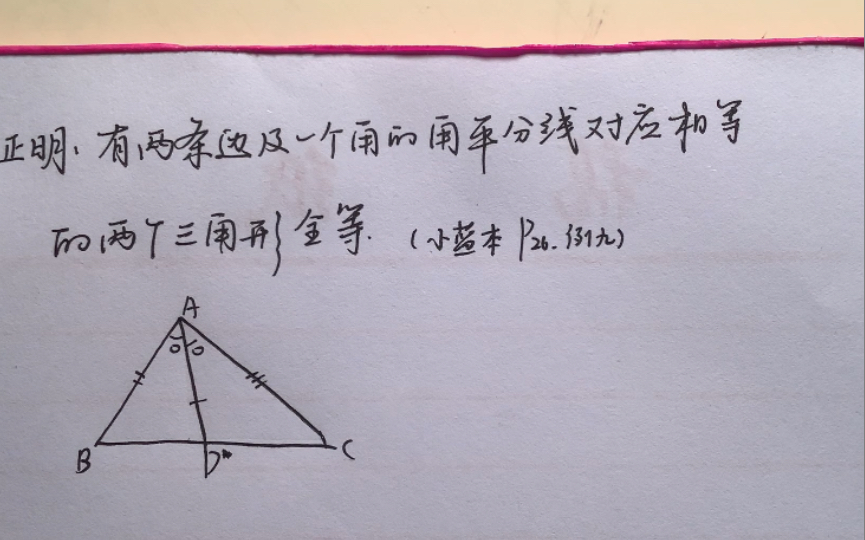 证明、有两条边及一个角的角平分线对应相等
的两个三角形全等.（小蓝本 P26.例九）
A
B D C